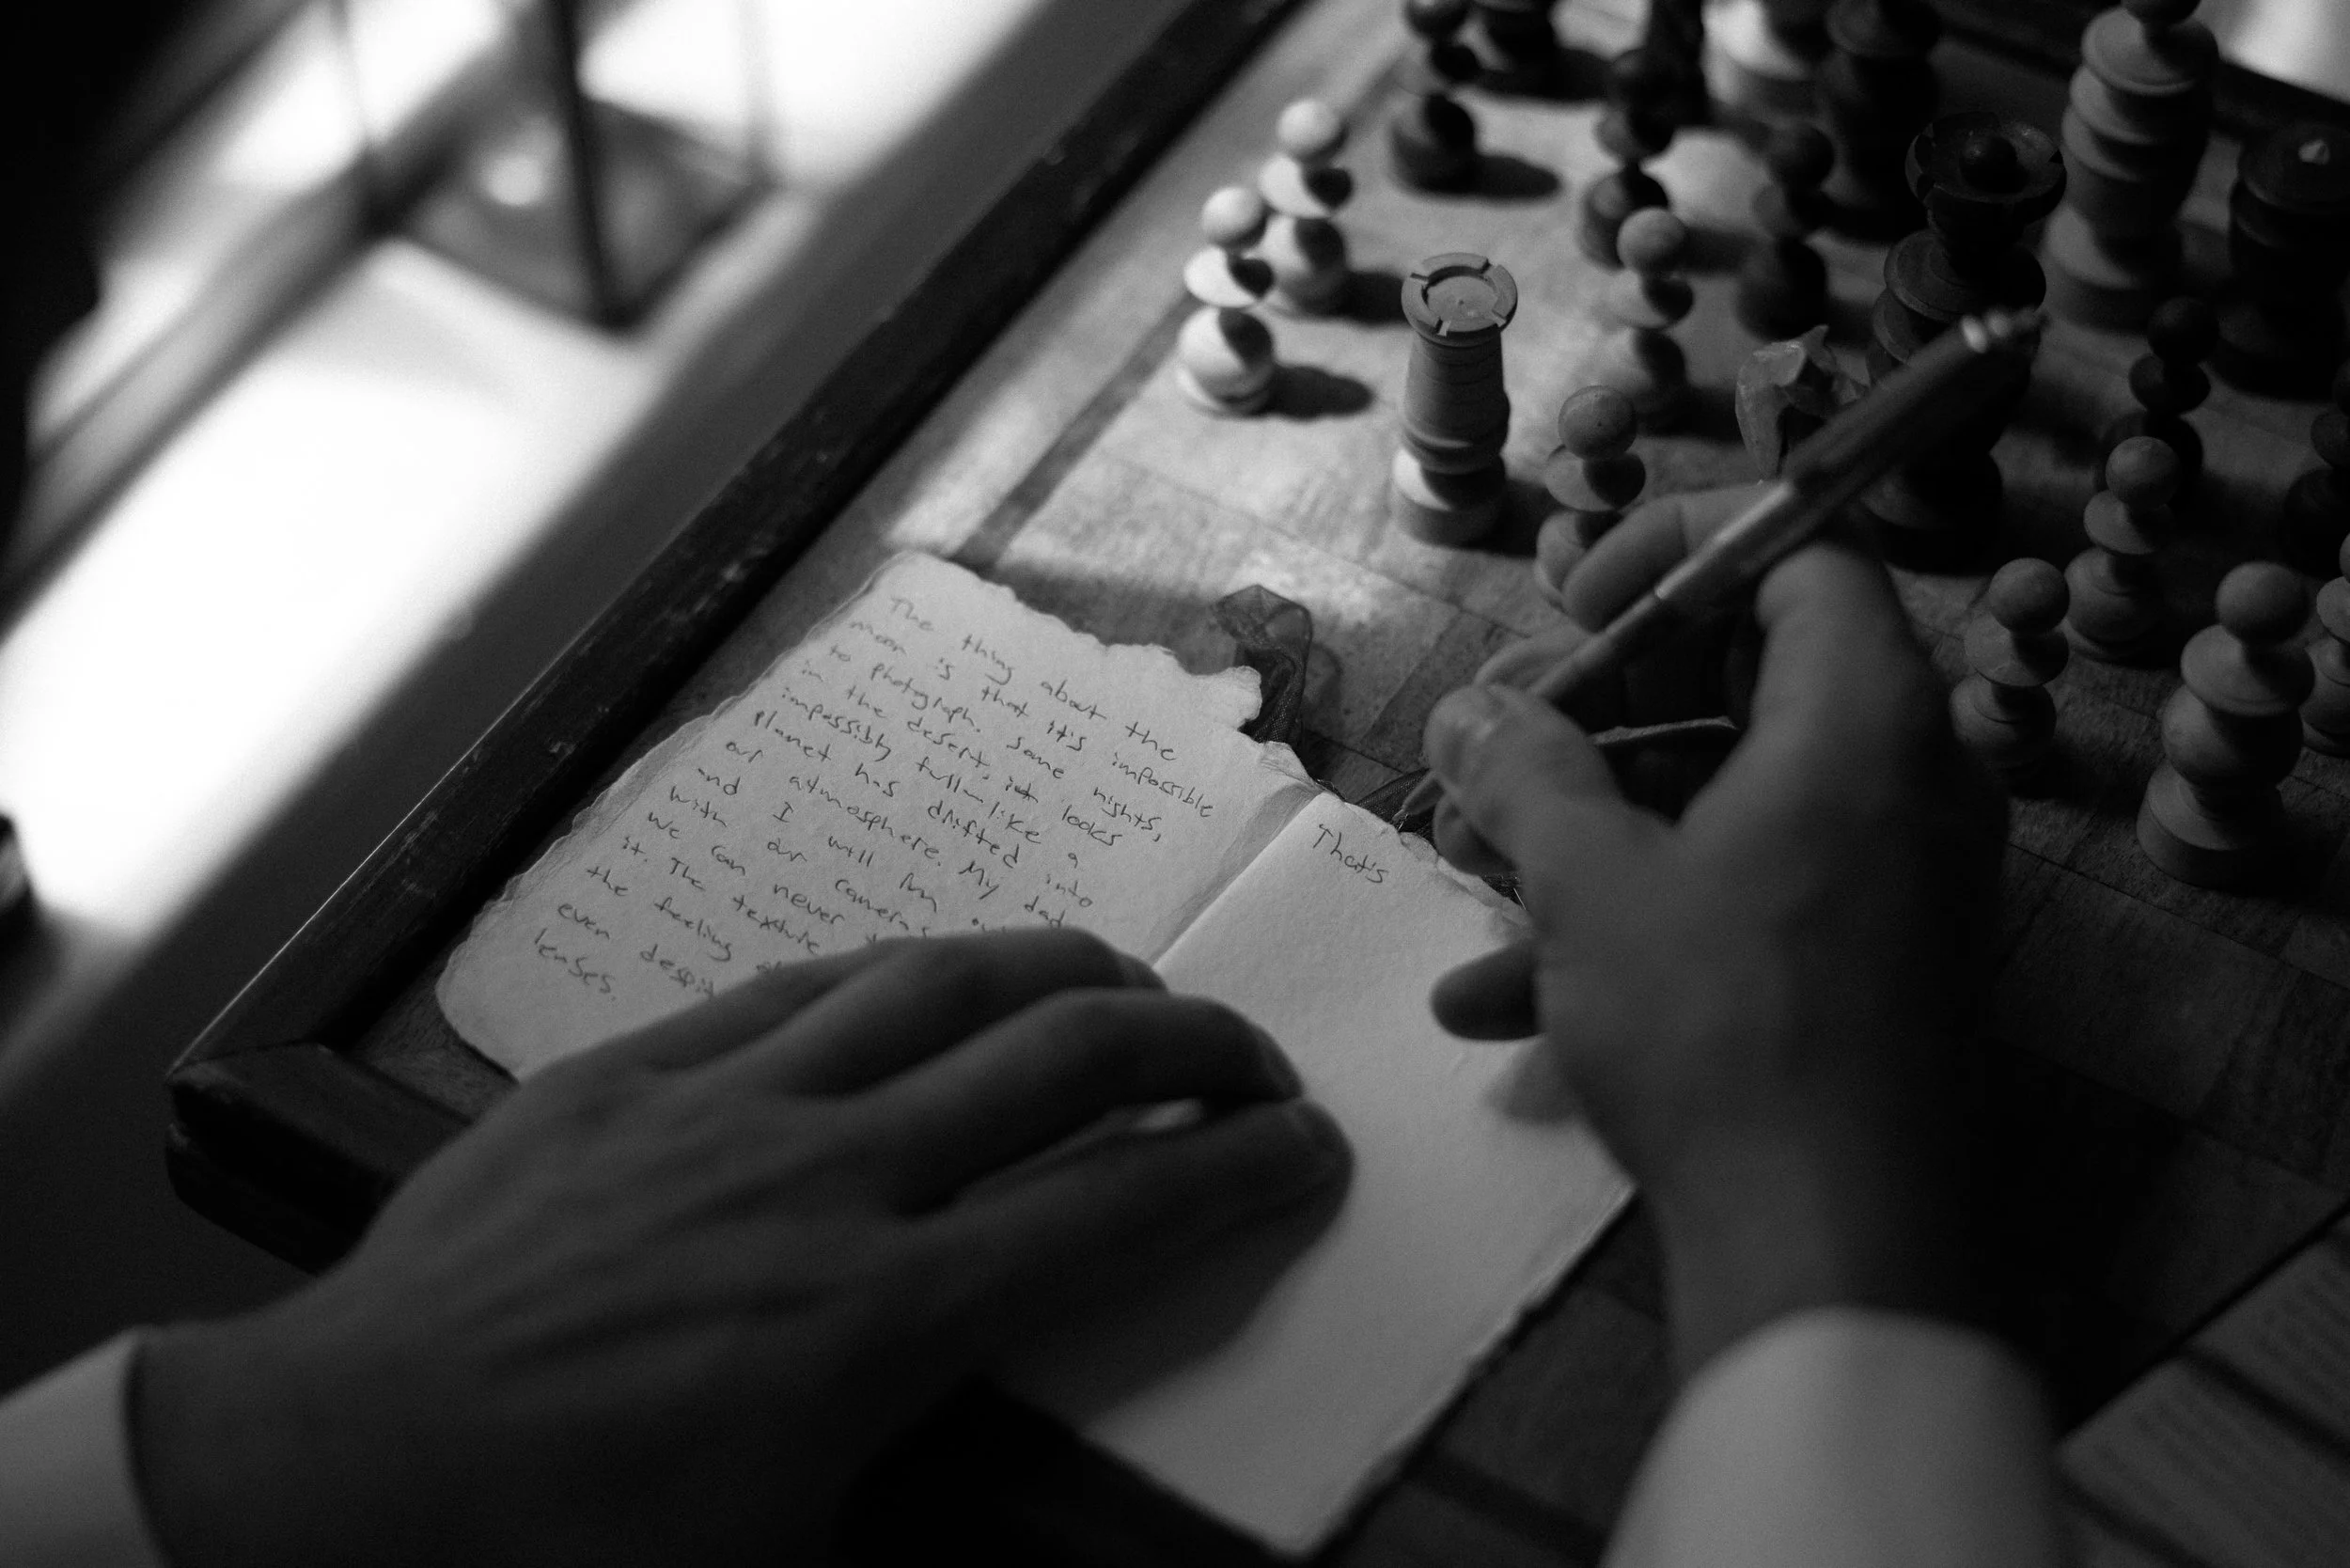 The thing about the
moon is that it's impossible
to photograph. Some nights,
in the desert, it looks
impossibly full—like a
planet has drifted into
our atmosphere. My dad
and I will run out
with our cameras
We can never
it. The texture
the feeling
even despite
lenses.
That's